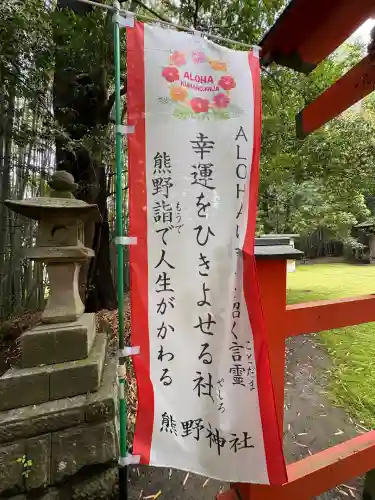 ALOHA
KUMANOJINJA
ALOHA
招く言霊
ことだま
幸運をひきよせる社
やしろ
熊野詣で人生がかわる
もうで
熊野神社